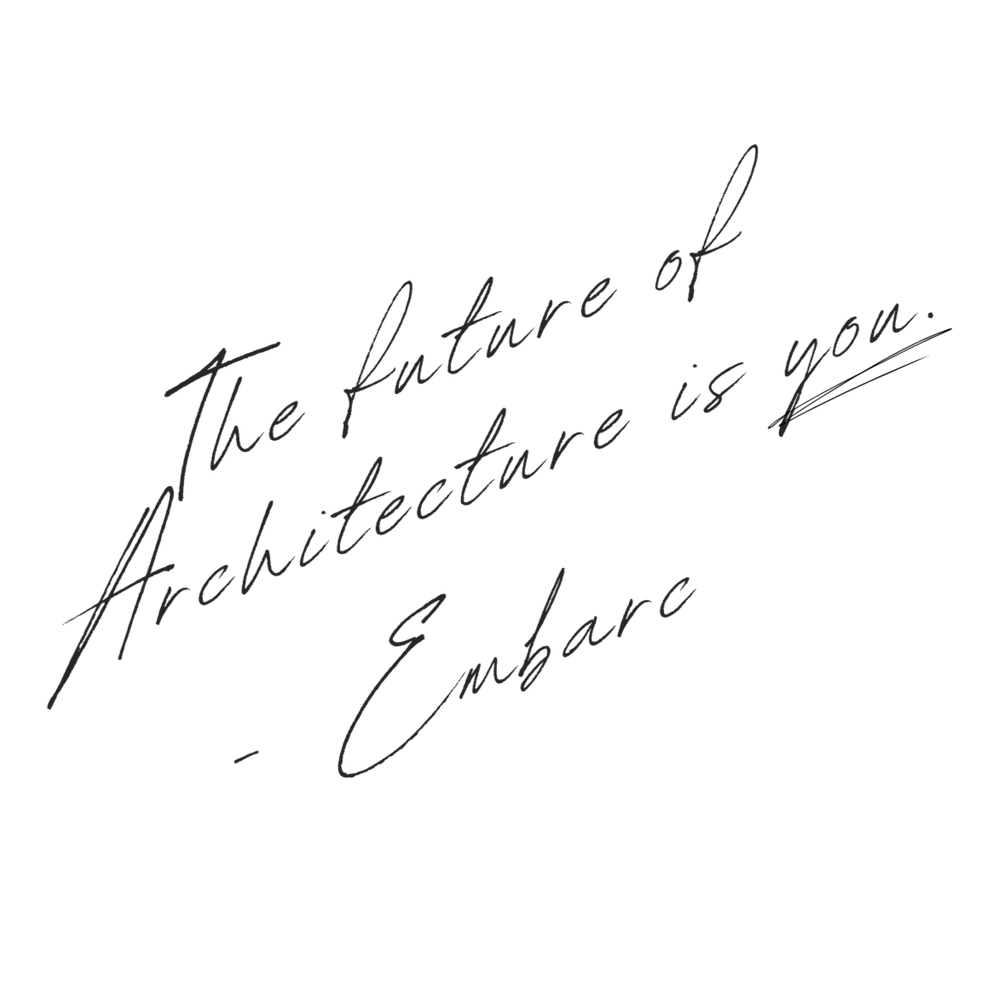 The future of
Architecture is you.
- Embarc